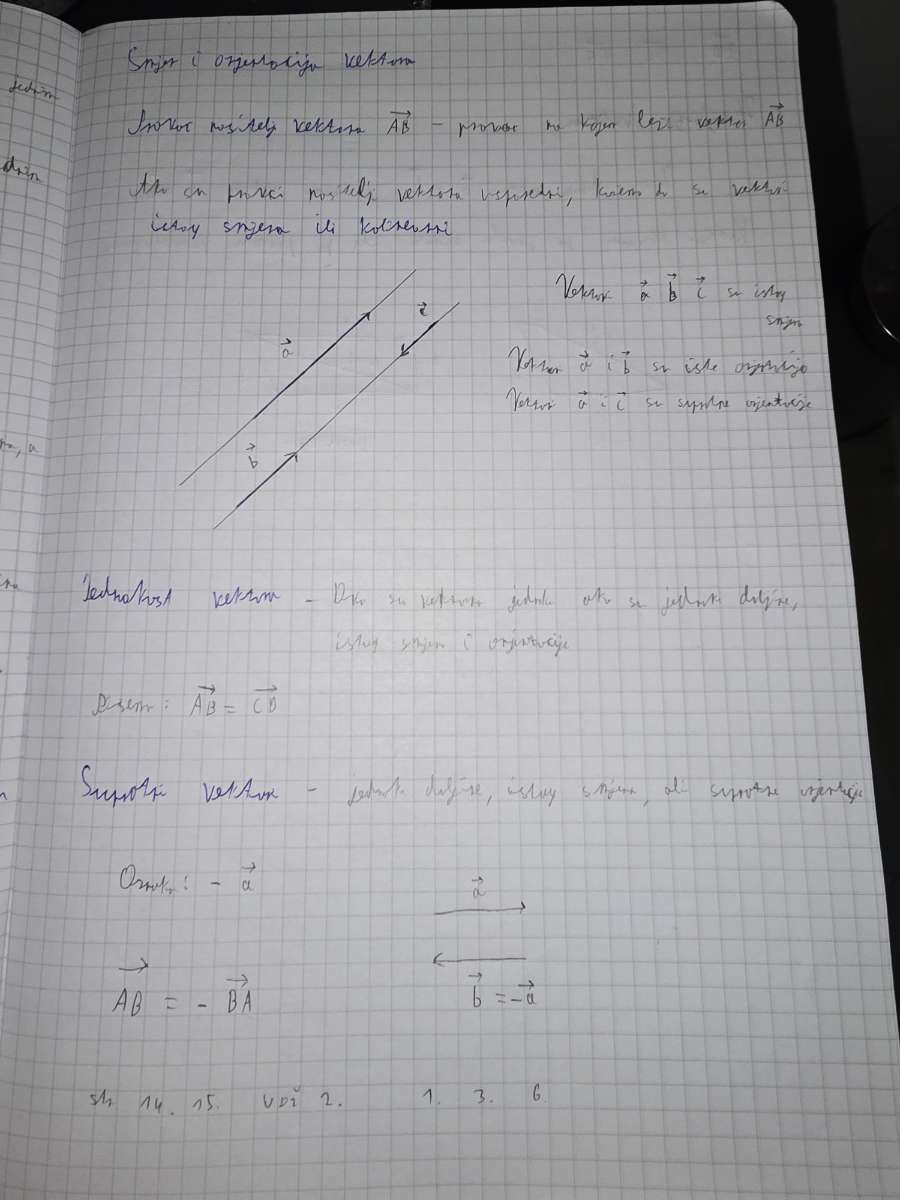 jednim
Smjer i orjentacija vektora
Pravac nositelj vektora AB⃗ – pravac na kojem leži vektor AB⃗
Ako su pravci nositelji vektora usporedni, kažemo da su vektori
istog smjera ili kolinearni
Vektori a⃗ b⃗ c⃗ su istog
smjera
a⃗
c⃗
Vektori a⃗ i b⃗ su iste orjentacije
Vektori a⃗ i c⃗ su suprotne orjentacije
b⃗
Jednakost vektora – Dva su vektora jednaka ako su jednake duljine,
istog smjera i orjentacije
Pišemo: AB⃗ = CD⃗
Suprotni vektori – jednake duljine, istog smjera, ali suprotne orjentacije
Oznaka: - a⃗
a⃗
AB⃗ = - BA⃗
b⃗ = -a⃗
str 14. 15. 2. 1. 3. 6.